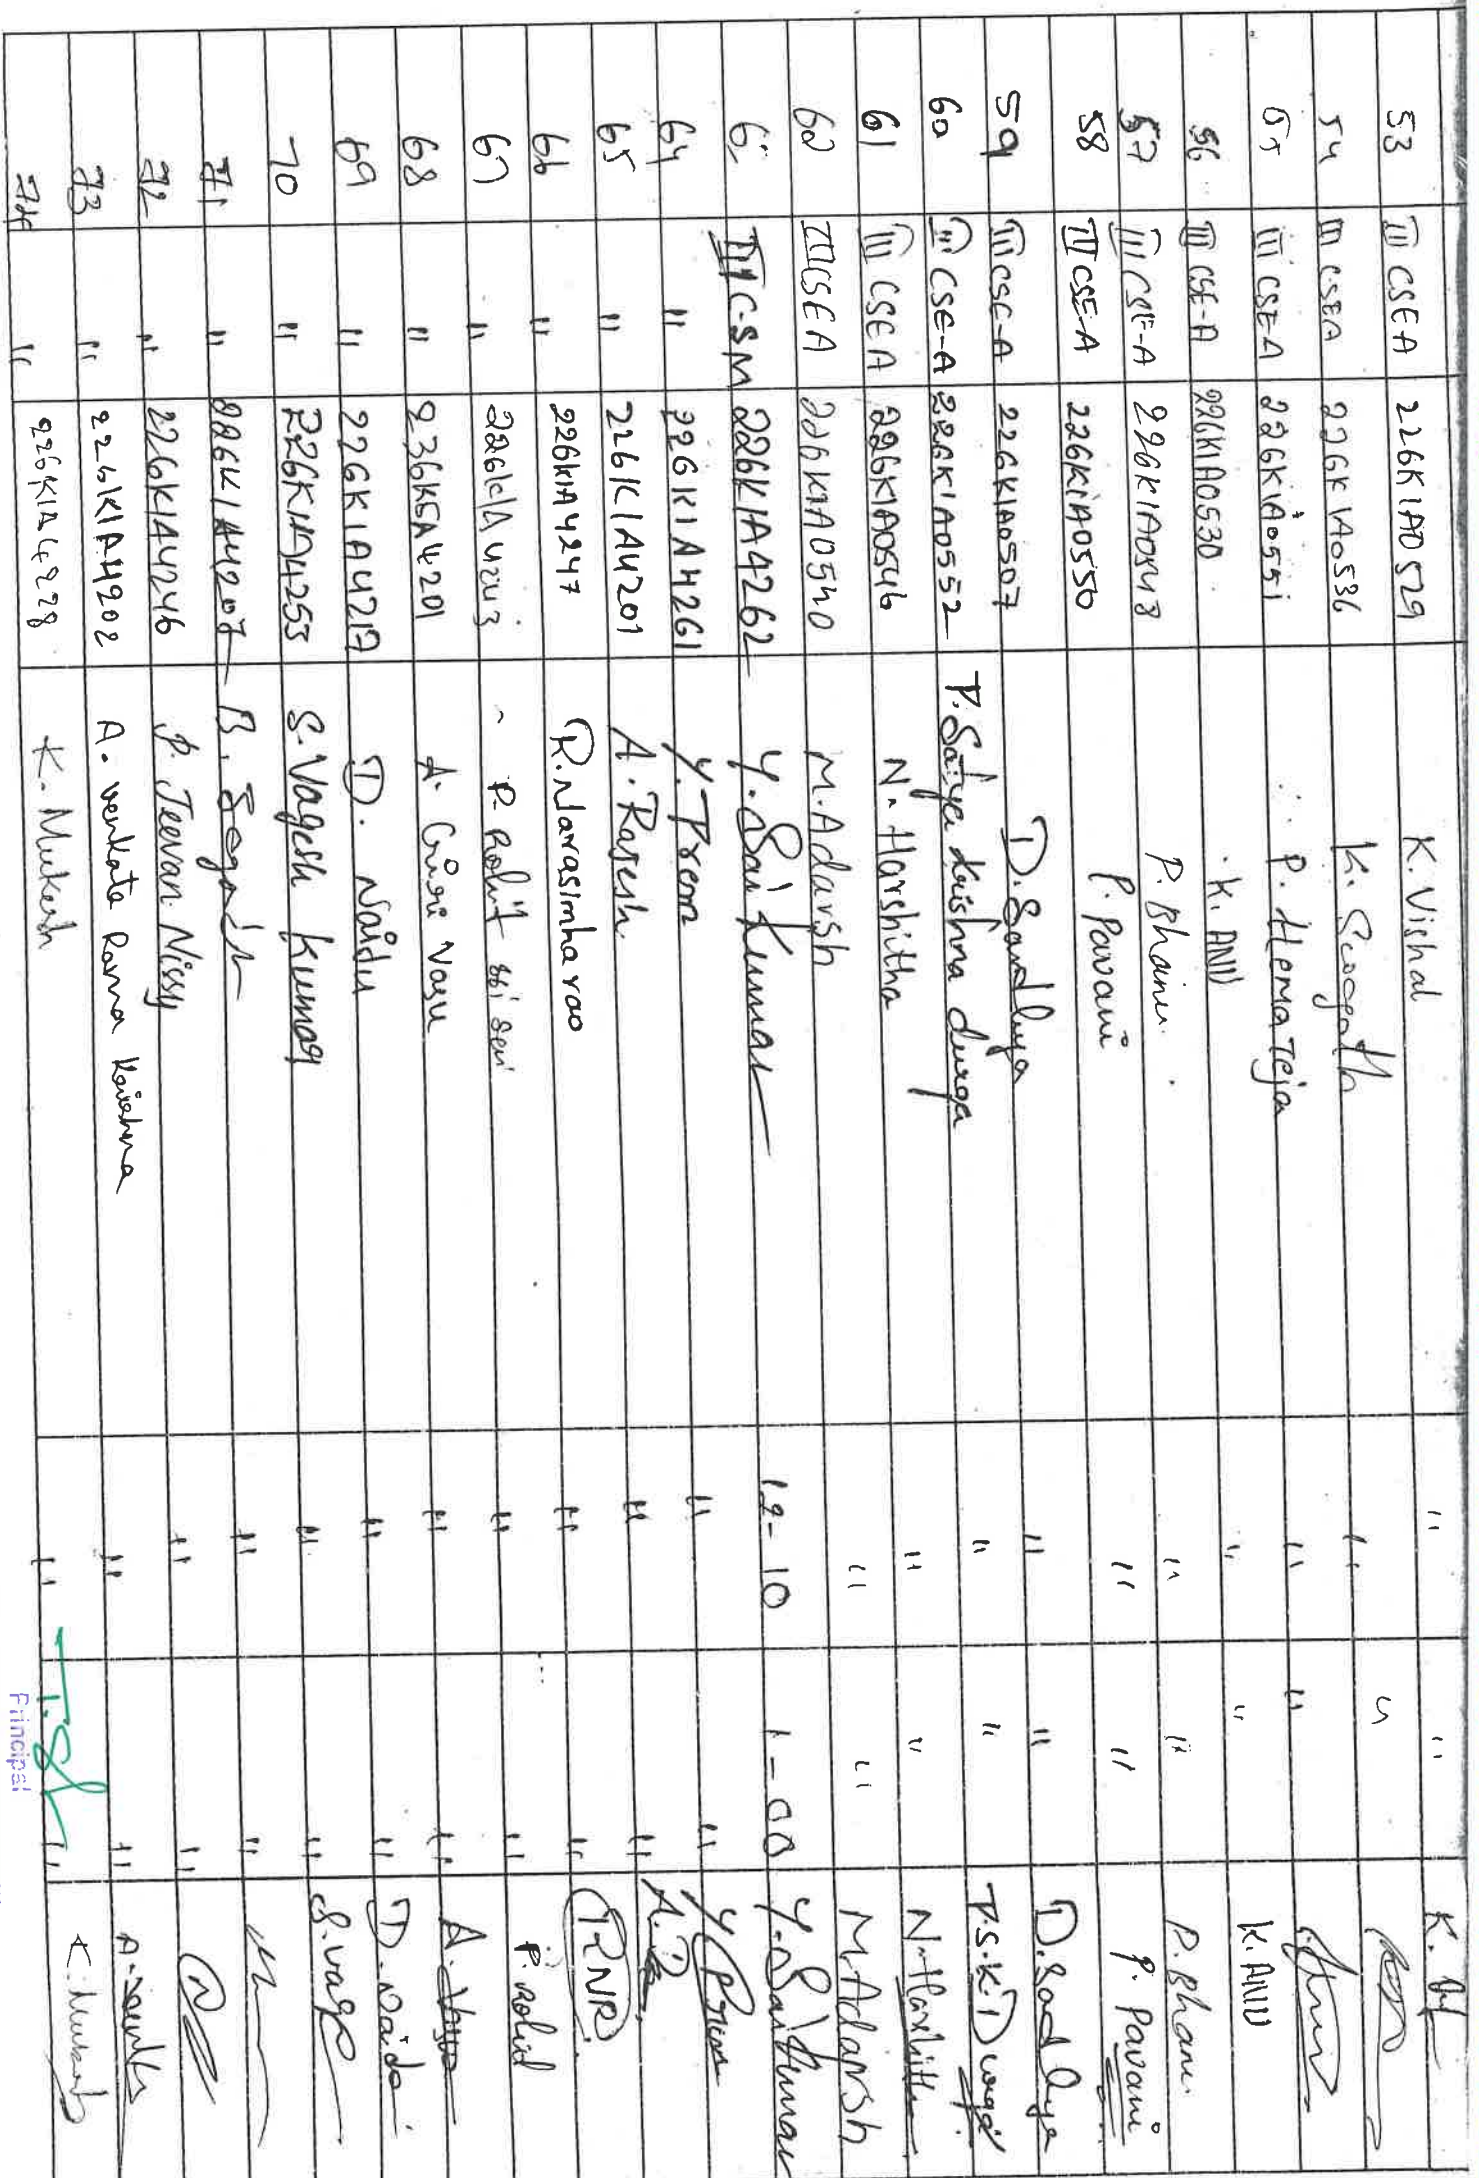 53 III CSE A 226K1A0529 K. Vishal " " K.
54 III CSEA 226K1A0536 K. " "
55 III CSE-A 226K1A0551 P. Hema Teja " "
56 III CSE-A 226K1A0530 K. AND " " K. AND
57 III CSE-A 226K1A0543 P. Bhanu " " P. Bhanu
58 III CSE-A 226K1A0550 P. Pavani " " P. Pavani
59 III CSE-A 226K1A0507 D. Sandhya " " D. Sandhya
60 III CSE-A 226K1A0552 P. Satya Krishna durga " " P.S.K Durga
61 III CSE A 226K1A0546 N. Harshitha " " N. Harshitha
62 III CSE A 226K1A0540 M. Adarsh " " M. Adarsh
6 III CSM 226K1A4262 Y. Sai Kumar 12-10 1-00 Y. Sai Kumar
64 " 226K1A4261 Y. Prem " " Y Prem
65 " 226K1A4201 A. Rajesh " " A.
66 " 226K1A4247 R. Narasimha rao " " RNR
67 " 226K1A4243 P. Rohit sai " " P. Rohit
68 " 236K5A4201 A. Giri Vasu " " A. Vasu
69 " 226K1A4217 D. Naidu " " D. Naidu
70 " 226K1A4253 S. Vagesh Kumar " " S. Vage
71 " 226K1A4207 B. " "
72 " 226K1A4246 P. Jeevan Nissy " "
73 " 226K1A4202 A. venkata Rama Krishna " " A.
74 " 226K1A4228 K. Mukesh " " K. Mukesh
Principal